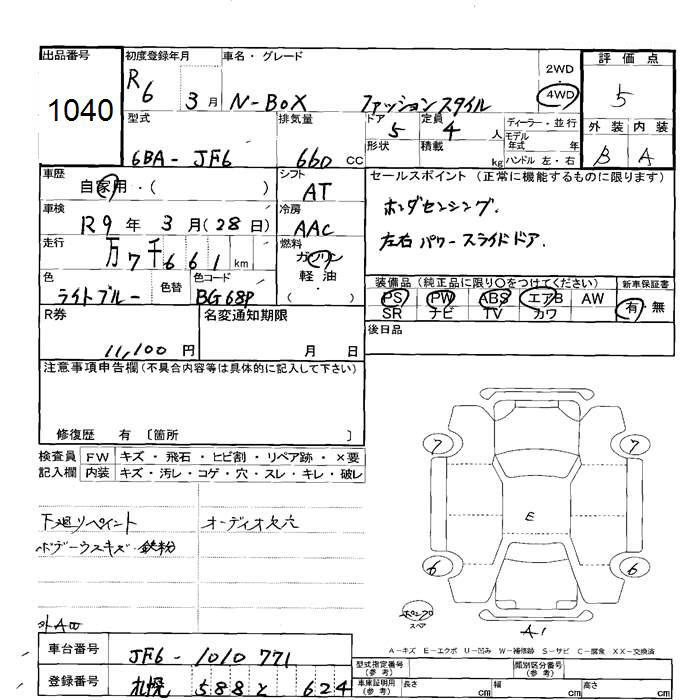 出品番号 初度登録年月 車名・グレード 2WD 評価点
1040 R6 3月 N-BOX ファッションスタイル ・ 4WD 5
型式 排気量 ドア 定員 ディーラー・並行 外装 内装
6BA-JF6 660 CC 5 4 人 モデル年式 年 B A
形状 積載 kg ハンドル 左・右
車歴 シフト セールスポイント (正常に機能するものに限ります)
自家用・( ) AT
車検 冷房 ホンダセンシング.
R9年 3月(28日) AAC
走行 燃料 左右パワースライドドア.
万7千661km ガソリン
色 色替 色コード 軽油 装備品(純正品に限り〇をつけてください) 新車保証書
ライトブルー BG68P ( ・ ) PS PW ABS エアB AW 有・無
R券 名変通知期限 SR ナビ TV カワ
11,100円 月 日 後日品
注意事項申告欄(不具合内容等は具体的に記入して下さい)
修復歴 有 〔箇所 〕
検査員 FW キズ・飛石・ヒビ割・リペア跡・×要
記入欄 内装 キズ・汚レ・コゲ・穴・スレ・キレ・破レ
7 7
下廻リペイント オーディオ欠穴 E
ボデーウスキズ・鉄粉
6 6
スペア A1
A-キズ E-エクボ U-凹み W-補修跡 S-サビ C-腐食 XX-交換済
車台番号 JF6-1010771 型式指定番号(参考) 類別区分番号(参考)
登録番号 札幌 588 と 624 車庫証明用(参考) 長さ cm 幅 cm 高さ cm